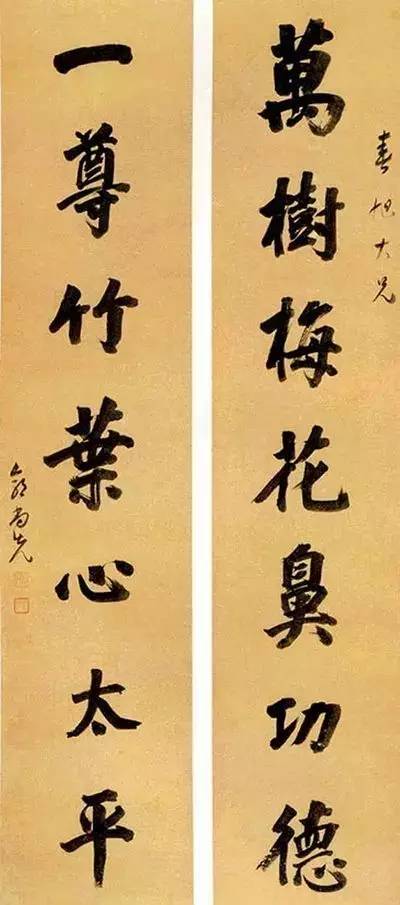 萬樹梅花鼻功德
春旭大兄
一尊竹葉心太平
郭尚先